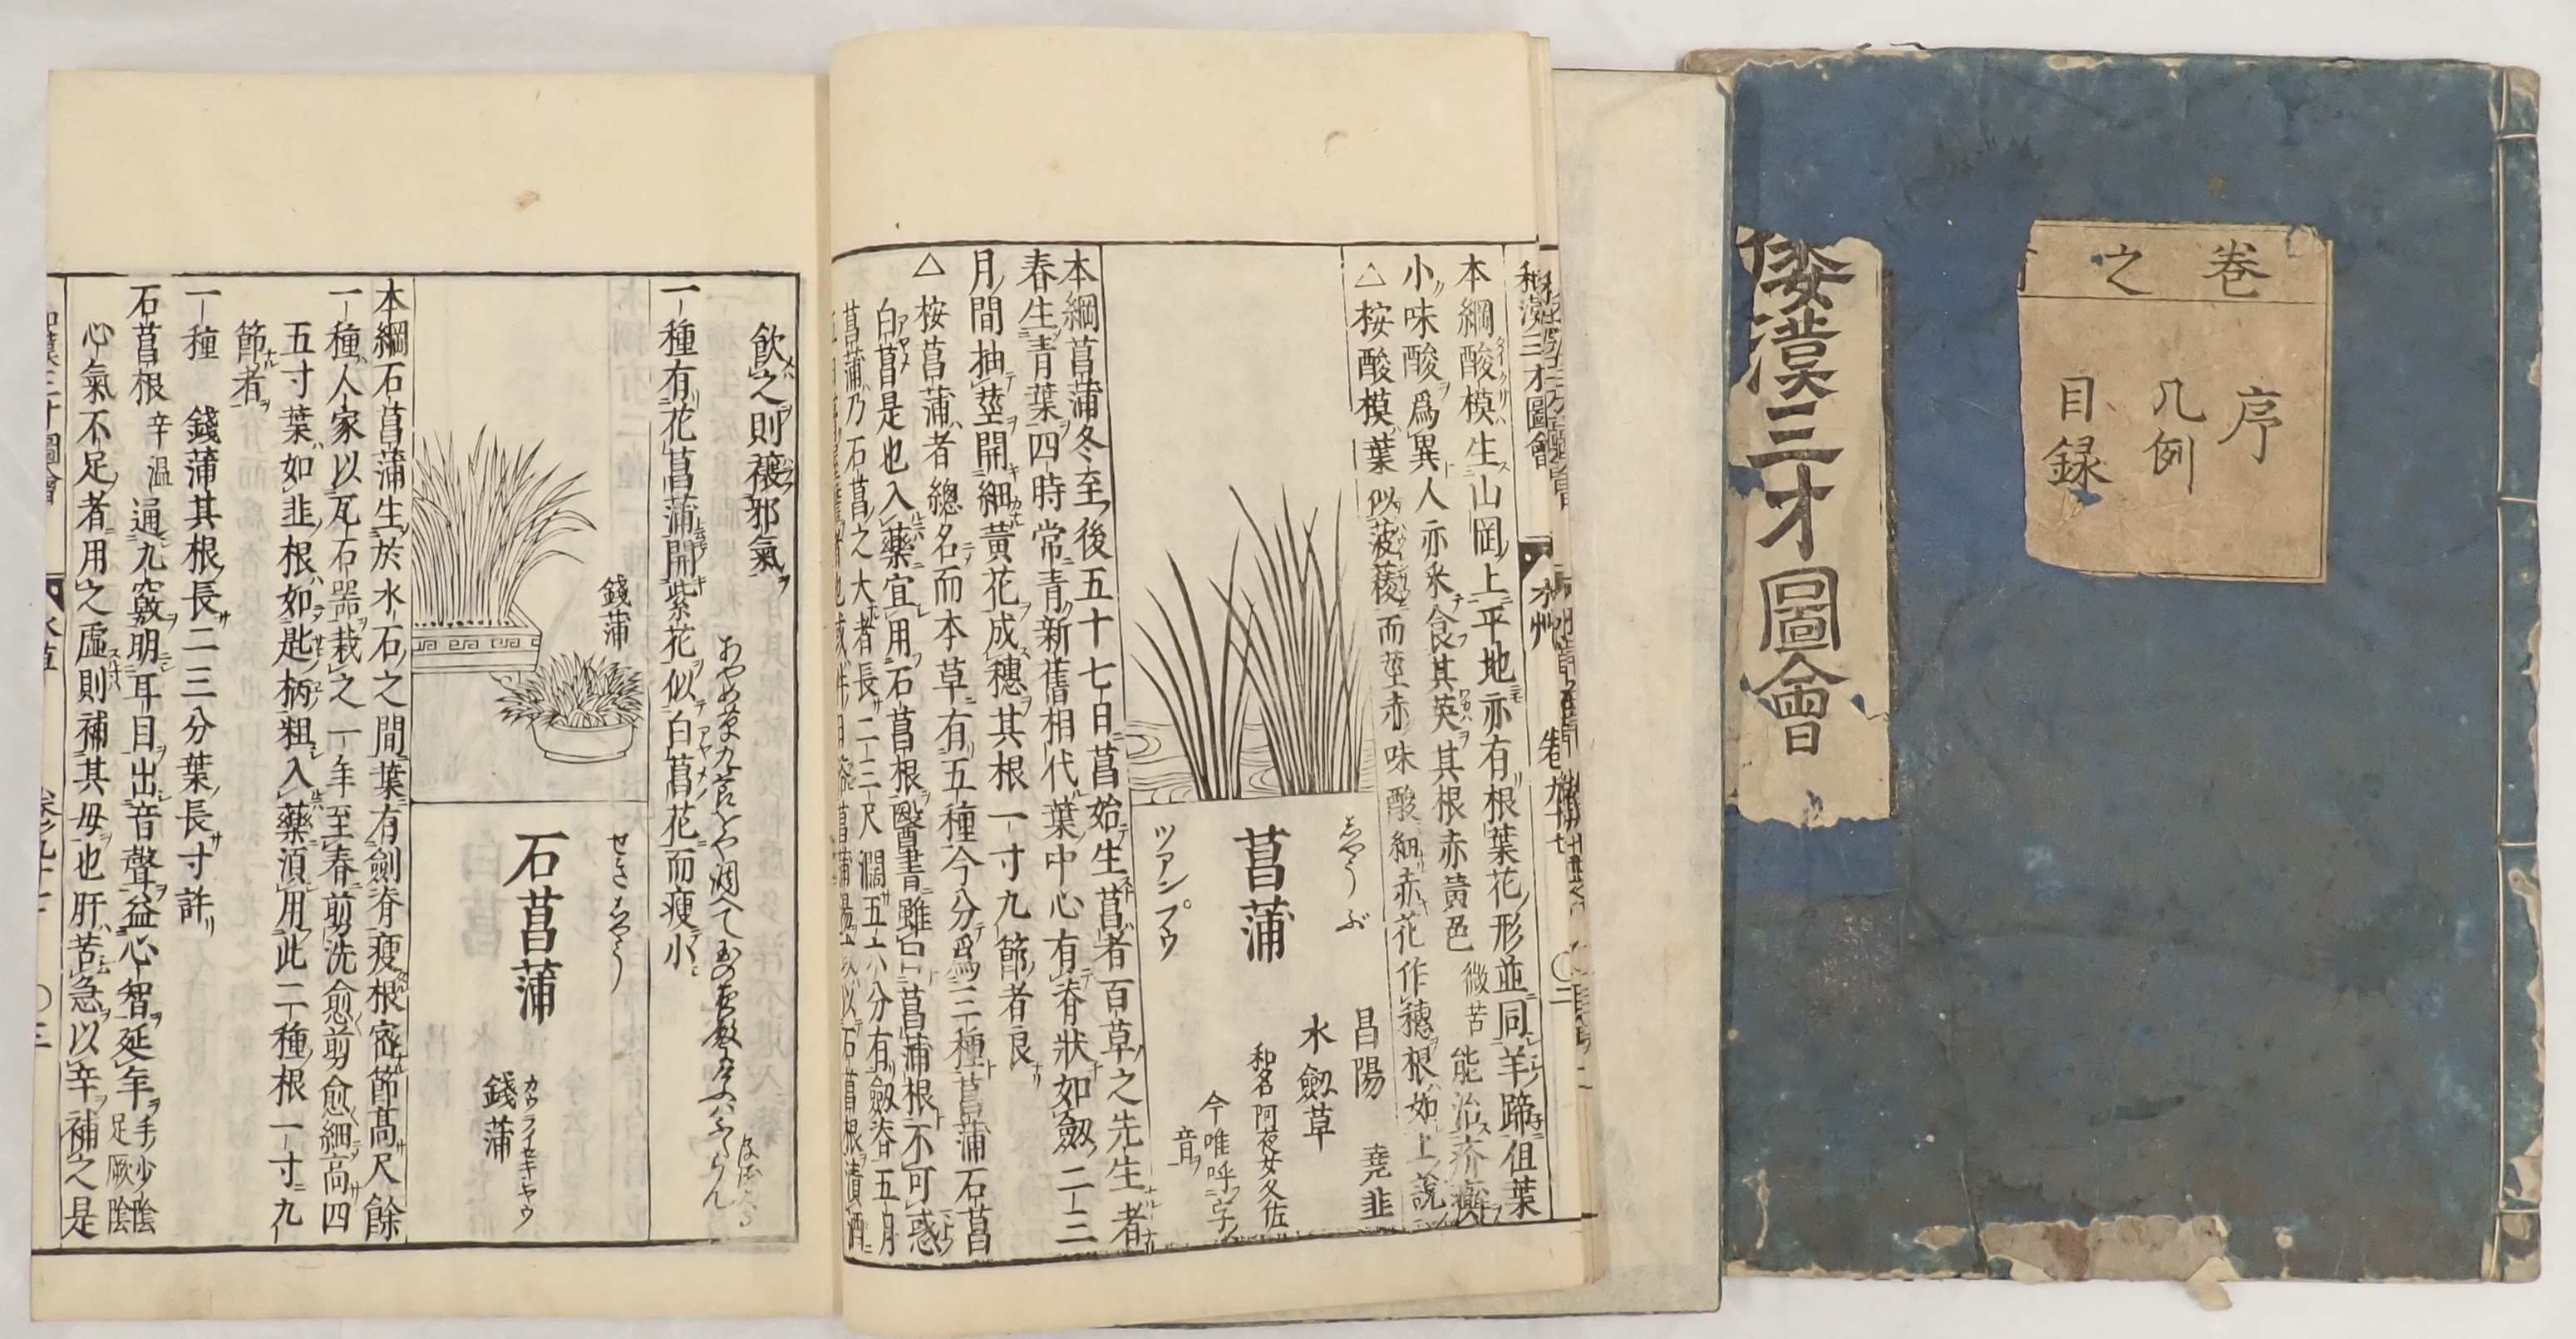 卷之
序
凡例
目録
倭漢三才圖會
和漢三才圖會
水艸
卷九十七
○二
本綱酸模生山岡上平地亦有根葉花形並同羊蹄但葉
小味酸爲異人亦采食其英其根赤黃色
微苦
能治疥癬
△ 桉酸模葉似菠薐而莖赤味酸細赤花作穗根如上說
しやうぶ
菖蒲
ツアンプウ
昌陽
堯韭
水劔草
和名 阿夜女久佐
今唯呼字
音
本綱菖蒲冬至後五十七日菖始生菖者百草之先生者
春生青葉四時常青新舊相代葉中心有脊狀如劔二三
月間抽莖開細黃花成穗其根一寸九節者良
△ 桉菖蒲者總名而本草有五種今分爲三種菖蒲石菖
白菖是也入藥宜用石菖根醫書雖曰菖蒲根不可惑
菖蒲乃石菖之大者長二三尺濶五六分有劔脊五月
飮之則禳邪氣
あやめ草
一種有花菖蒲開紫花似白菖花而瘦小
錢蒲
せきしやう
石菖蒲
カウライセキシヤウ
錢蒲
本綱石菖蒲生於水石之間葉有劍脊瘦根密節高尺餘
一種人家以瓦石器栽之一年至春剪洗愈剪愈細高四
五寸葉如韭根如匙柄粗入藥須用此二種根一寸九
節者
一種 錢蒲其根長二三分葉長寸許
石菖根
辛温
通九竅明耳目出音聲益心智延年
手少陰
足厥陰
心氣不足者用之虛則補其母也肝苦急以辛補之是